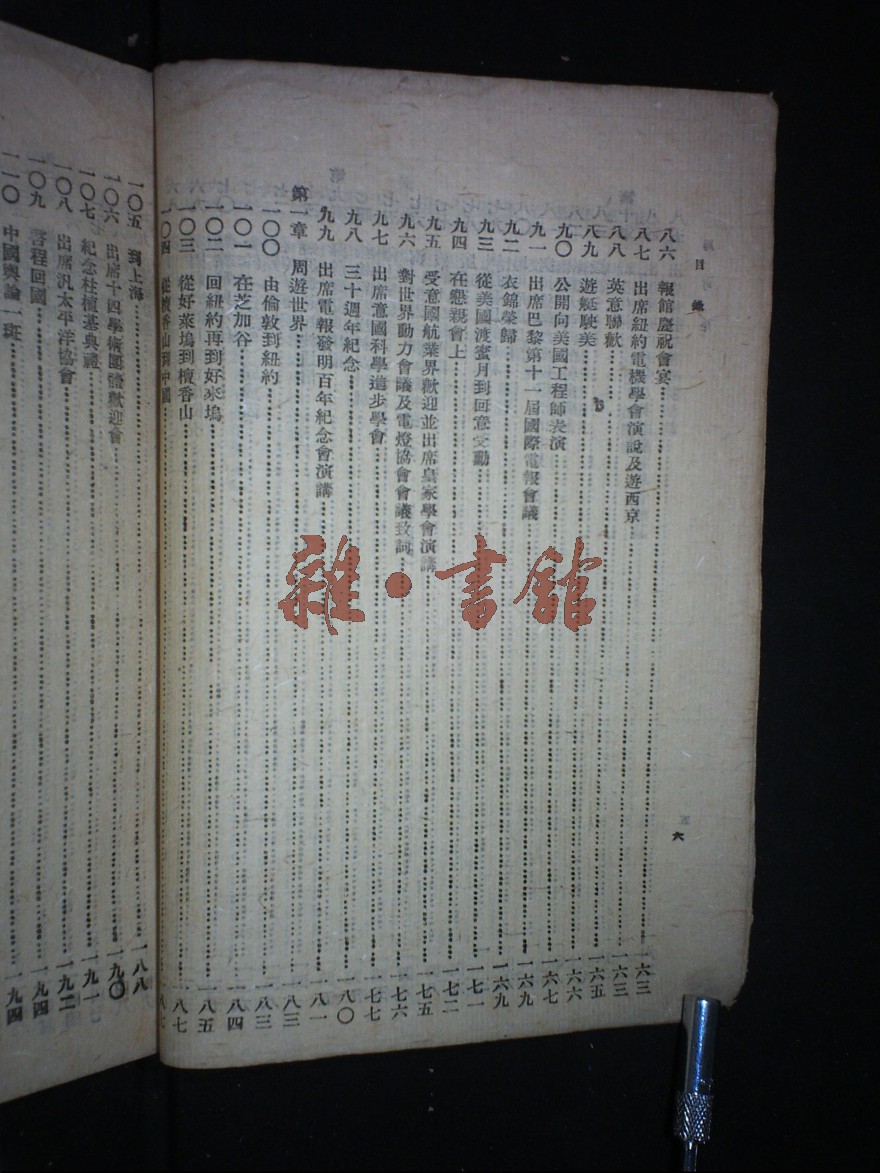 目錄
六
八六 報館慶祝會宴 一六三
八七 出席紐約電機學會演說及遊西京 一六三
八八 英意聯歡 一六五
八九 遊艇駛美 一六六
九〇 公開向美國工程師表演 一六七
九一 出席巴黎第十一屆國際電報會議 一六九
九二 衣錦榮歸 一六九
九三 從美國渡蜜月到回意受勳 一七一
九四 在懇親會上 一七二
九五 受意國航業界歡迎並出席皇家學會演講 一七五
九六 對世界動力會議及電燈協會會議致詞 一七六
九七 出席意國科學進步學會 一七七
九八 三十週年紀念 一八〇
九九 出席電報發明百年紀念會演講 一八一
第一章 周遊世界 一八三
一〇〇 由倫敦到紐約 一八三
一〇一 在芝加谷 一八四
一〇二 回紐約再到好來塢 一八五
一〇三 從好萊塢到檀香山 一八七
一〇四 從檀香山到中國
一〇五 到上海 一八八
一〇六 出席十四學術團體歡迎會 一九〇
一〇七 紀念柱植基典禮 一九一
一〇八 出席汎太平洋協會 一九二
一〇九 啓程回國 一九四
一一〇 中國輿論一斑 一九四
雜·書館